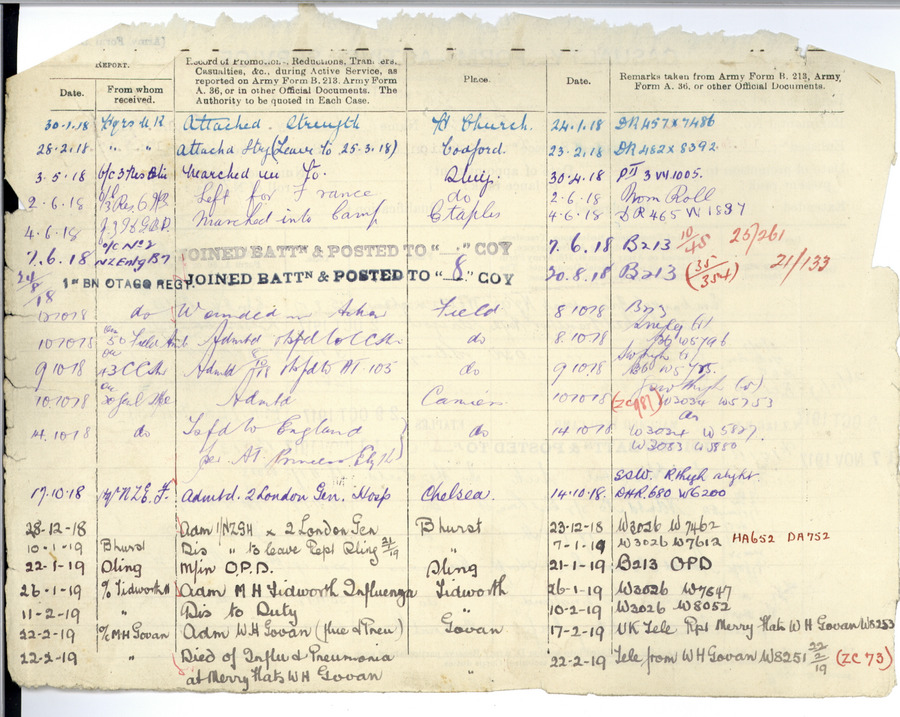 REPORT.
Date.
From whom received.
Record of Promotions, Reductions, Transfers, Casualties, &c., during Active Service, as reported on Army Form B. 213, Army Form A. 36, or in other Official Documents. The Authority to be quoted in Each Case.
Place.
Date.
Remarks taken from Army Form B. 213, Army Form A. 36, or other Official Documents.
30.1.18 Hqrs U.K Attached Strength H Church. 24.1.18 DR457x7486
28.2.18 " " Attachd Stg (Leave to 25.3.18) Codford. 23.2.18 DR482x8392
3.5.18 o/c 3 Res Marched in fr. Sling. 30.4.18 PII 1005.
2.6.18 Left for France do 2.6.18 Nom Roll
4.6.18 Marched into Camp Etaples 4.6.18 DR465 W1897
7.6.18 o/c No 2 NZ Entrg Bn JOINED BATTN & POSTED TO " " COY 7.6.18 B213 10/45 25/261
20/8/18 1st BN OTAGO REGT. JOINED BATTN & POSTED TO "8" COY 20.8.18 B213 (35/354) 21/133
do Wounded in Action Field 8.10.18 B213
10.10.18 50 Field Amb Admtd & tsfd to CCS do 8.10.18 W5796
9.10.18 43 CCS Admtd 8/10/18 tsfd to AT 105 do 9.10.18
10.10.18 Admtd Camiers 10.10.18 (ZC981) W3034 W5753
14.10.18 do Tsfd to England do 14.10.18 W3034 W5827
per AT. W3083 W5880
17.10.18 NZE.F. Admtd. 2 London Gen. Hosp Chelsea. 14.10.18. GSW. R thigh slight. DHR.680 W6200
23-12-18 Adm 1/NZGH x 2 London Gen Bhurst 23-12-18 W3026 W7462
10-1-19 Bhurst Dis " to leave Rept Sling 21/1/19 " 7-1-19 W3026 W7612 HA652 DA752
22-1-19 Sling M/in O.P.D. Sling 21-1-19 B213 OPD
26-1-19 o/c Tidworth H Adm M H Tidworth Influenza Tidworth 26-1-19 W3026 W7847
11-2-19 " Dis to Duty " 10-2-19 W3026 W8052
22-2-19 o/c MH Govan Adm W H Govan (flue & Pneu) Govan 17-2-19 UK Tele Rpt Merry flats W H Govan W8253
22-2-19 " Died of Influ & Pneumonia 22-2-19 Tele from WH Govan W8251 22/2/19 (ZC 73)
at Merry flats WH Govan "